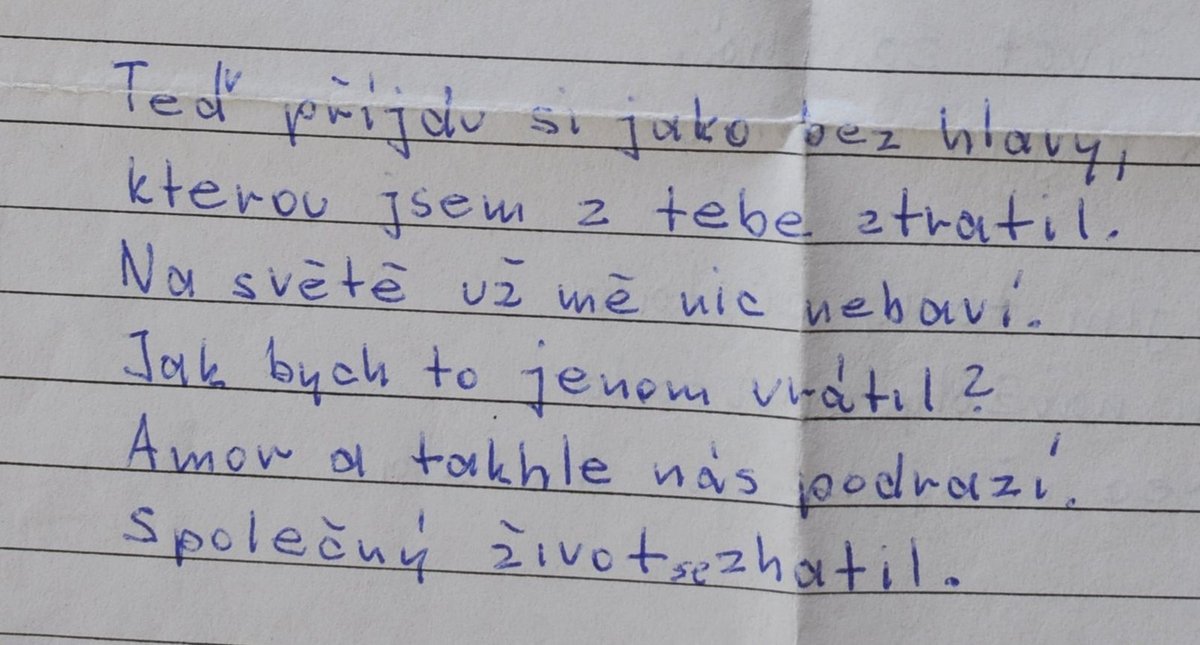 Teď příjdu si jako bez hlavy,
kterou jsem z tebe ztratil.
Na světě už mě nic nebaví.
Jak bych to jenom vrátil?
Amor a takhle nás podrazí.
Společný život se zhatil.